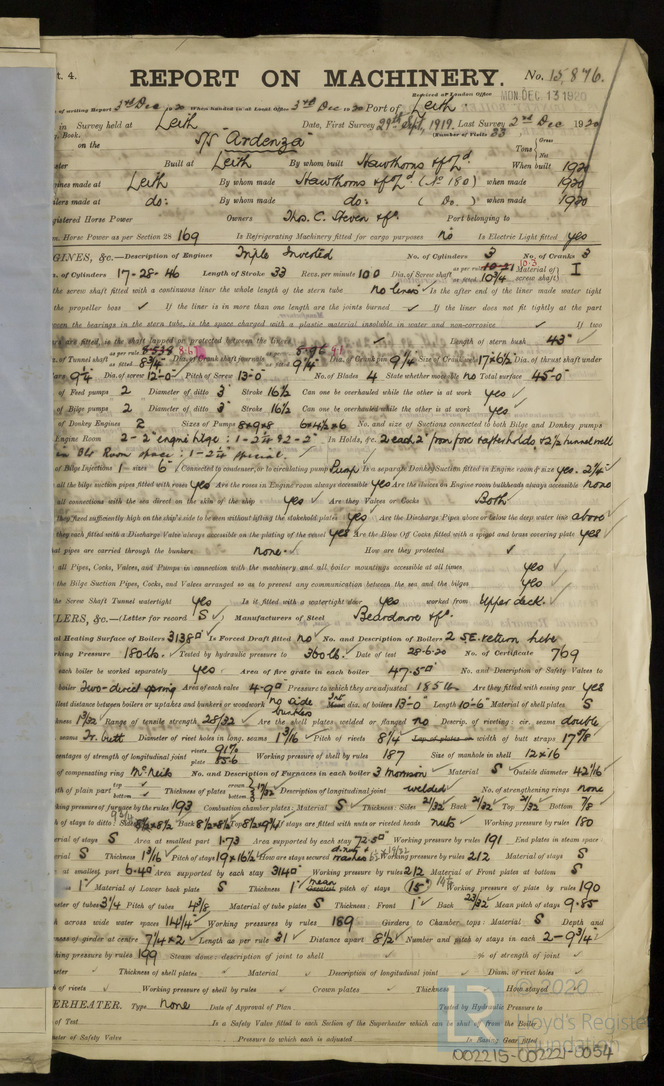 t. 4.
REPORT ON MACHINERY.
No. 15,876.
Received at London Office
MON. DEC. 13 1920
of writing Report 3rd Dec 1920 When handed in at Local Office 3rd Dec 1920 Port of Leith
in Survey held at Leith Date, First Survey 29th Sept, 1919, Last Survey 2nd Dec 1920
Book.
(Number of Visits 33
on the S/S "Ardenza" Tons Gross Net
Built at Leith By whom built Hawthorns & Co Ld When built 1920
ines made at Leith By whom made Hawthorns & Co Ld (No 180) when made 1920
ilers made at do: By whom made do: (Do.) when made 1920
gistered Horse Power Owners Thos. C. Steven & Co. Port belonging to
Horse Power as per Section 28 169 Is Refrigerating Machinery fitted for cargo purposes no Is Electric Light fitted yes
GINES, &c.—Description of Engines Triple Inverted No. of Cylinders 3 No. of Cranks 3
of Cylinders 17-28-46 Length of Stroke 33 Revs. per minute 100 Dia. of Screw shaft as per rule 10.3 as fitted 10¾ Material of screw shaft I
the screw shaft fitted with a continuous liner the whole length of the stern tube no liner Is the after end of the liner made water tight
the propeller boss ✓ If the liner is in more than one length are the joints burned ✓ If the liner does not fit tightly at the part
ween the bearings in the stern tube, is the space charged with a plastic material insoluble in water and non-corrosive ✓ If two
are fitted, is the shaft lapped or protected between the liners ✓ Length of stern bush 43"
of Tunnel shaft as fitted 8¾ Dia. of Crank shaft journals 9¼ Dia. of Crank pin 9¼ Size of Crank webs 17x6½ Dia. of thrust shaft under
9¼ Dia. of screw 12-0 Pitch of Screw 13-0 No. of Blades 4 State whether moveable no Total surface 45-0
of Feed pumps 2 Diameter of ditto 3 Stroke 16½ Can one be overhauled while the other is at work yes ✓
of Bilge pumps 2 Diameter of ditto 3 Stroke 16½ Can one be overhauled while the other is at work yes
of Donkey Engines 2 Sizes of Pumps 8x9x8 6x4½x6 No. and size of Suctions connected to both Bilge and Donkey pumps
Engine Room In Holds, &c. 2 each 2" from fore & after holds, & 2½ tunnel well
of Bilge Injections 1 sizes 6" Connected to condenser, or to circulating pump Pump Is a separate Donkey Suction fitted in Engine room & size yes. 2½
all the bilge suction pipes fitted with roses yes Are the roses in Engine room always accessible yes Are the sluices on Engine room bulkheads always accessible none
all connections with the sea direct on the skin of the ship yes ✓ Are they Valves or Cocks Both
they fixed sufficiently high on the ship's side to be seen without lifting the stokehold plates yes Are the Discharge Pipes above or below the deep water line above
they each fitted with a Discharge Valve always accessible on the plating of the vessel yes Are the Blow Off Cocks fitted with a spigot and brass covering plate yes
at pipes are carried through the bunkers none How are they protected ✓
all Pipes, Cocks, Valves, and Pumps in connection with the machinery and all boiler mountings accessible at all times yes ✓
the Bilge Suction Pipes, Cocks, and Valves arranged so as to prevent any communication between the sea and the bilges yes ✓
the Screw Shaft Tunnel watertight yes Is it fitted with a watertight door yes worked from Upper deck.
LERS, &c.—(Letter for record S) Manufacturers of Steel Beardmore & Co.
Heating Surface of Boilers 3138 Is Forced Draft fitted no No. and Description of Boilers 2 SE. return tube
king Pressure 180 lb. Tested by hydraulic pressure to 360 lb. Date of test 28-6-20 No. of Certificate 769
each boiler be worked separately yes Area of fire grate in each boiler 47.5 No. and Description of Safety Valves to
boiler Two-direct spring Area of each valve 4.9 Pressure to which they are adjusted 185 lb Are they fitted with easing gear yes
llest distance between boilers or uptakes and bunkers or woodwork no side bunkers dia. of boilers 13-0 Length 10-6 Material of shell plates S
kness 1 1/32 Range of tensile strength 28/32 Are the shell plates welded or flanged no Descrip. of riveting: cir. seams double
seams Tr. butt Diameter of rivet holes in long. seams 1 3/16 Pitch of rivets 8¼ width of butt straps 17 7/8
centages of strength of longitudinal joint rivets 91% plate 85.6 Working pressure of shell by rules 187 Size of manhole in shell 12x16
of compensating ring McNeils No. and Description of Furnaces in each boiler 3 Morrison Material S Outside diameter 42 1/16
th of plain part top bottom Thickness of plates crown bottom 17/32 Description of longitudinal joint welded No. of strengthening rings none
king pressure of furnace by the rules 193 Combustion chamber plates: Material S Thickness: Sides 21/32 Back 21/32 Top 21/32 Bottom 7/8
h of stays to ditto: Back 8½x8½ Top 8½x9¼ If stays are fitted with nuts or riveted heads nuts Working pressure by rules 180
erial of stays S Area at smallest part 1.73 Area supported by each stay 72.5 Working pressure by rules 191 End plates in steam space:
erial S Thickness 1 3/16 Pitch of stays 19x16½ How are stays secured d.nuts & washers Working pressure by rules 212 Material of stays S
at smallest part 6.40 Area supported by each stay 314 Working pressure by rules 212 Material of Front plates at bottom S
1" Material of Lower back plate S Thickness 1" mean pitch of stays 15" Working pressure of plate by rules 190
eter of tubes 3¼ Pitch of tubes 4 3/8 Material of tube plates S Thickness: Front 1" Back 23/32 Mean pitch of stays 9.85
across wide water spaces 14¼ Working pressures by rules 189 Girders to Chamber tops: Material S Depth and
ness of girder at centre 7¼x2 Length as per rule 31 Distance apart 8½ Number and pitch of stays in each 2-9¾
king pressure by rules 199 Steam dome: description of joint to shell ✓ % of strength of joint ✓
eter ✓ Thickness of shell plates ✓ Material ✓ Description of longitudinal joint ✓ Diam. of rivet holes ✓
of rivets ✓ Working pressure of shell by rules Crown plates ✓ Thickness How stayed ✓
ERHEATER. Type none Date of Approval of Plan Tested by Hydraulic Pressure to
of Test Is a Safety Valve fitted to each Section of the Superheater which can be shut off from the Boiler
meter of Safety Valve Pressure to which each is adjusted Is Easing Gear fitted
© 2020
Lloyd's Register
Foundation
LR
002215-002221-0054